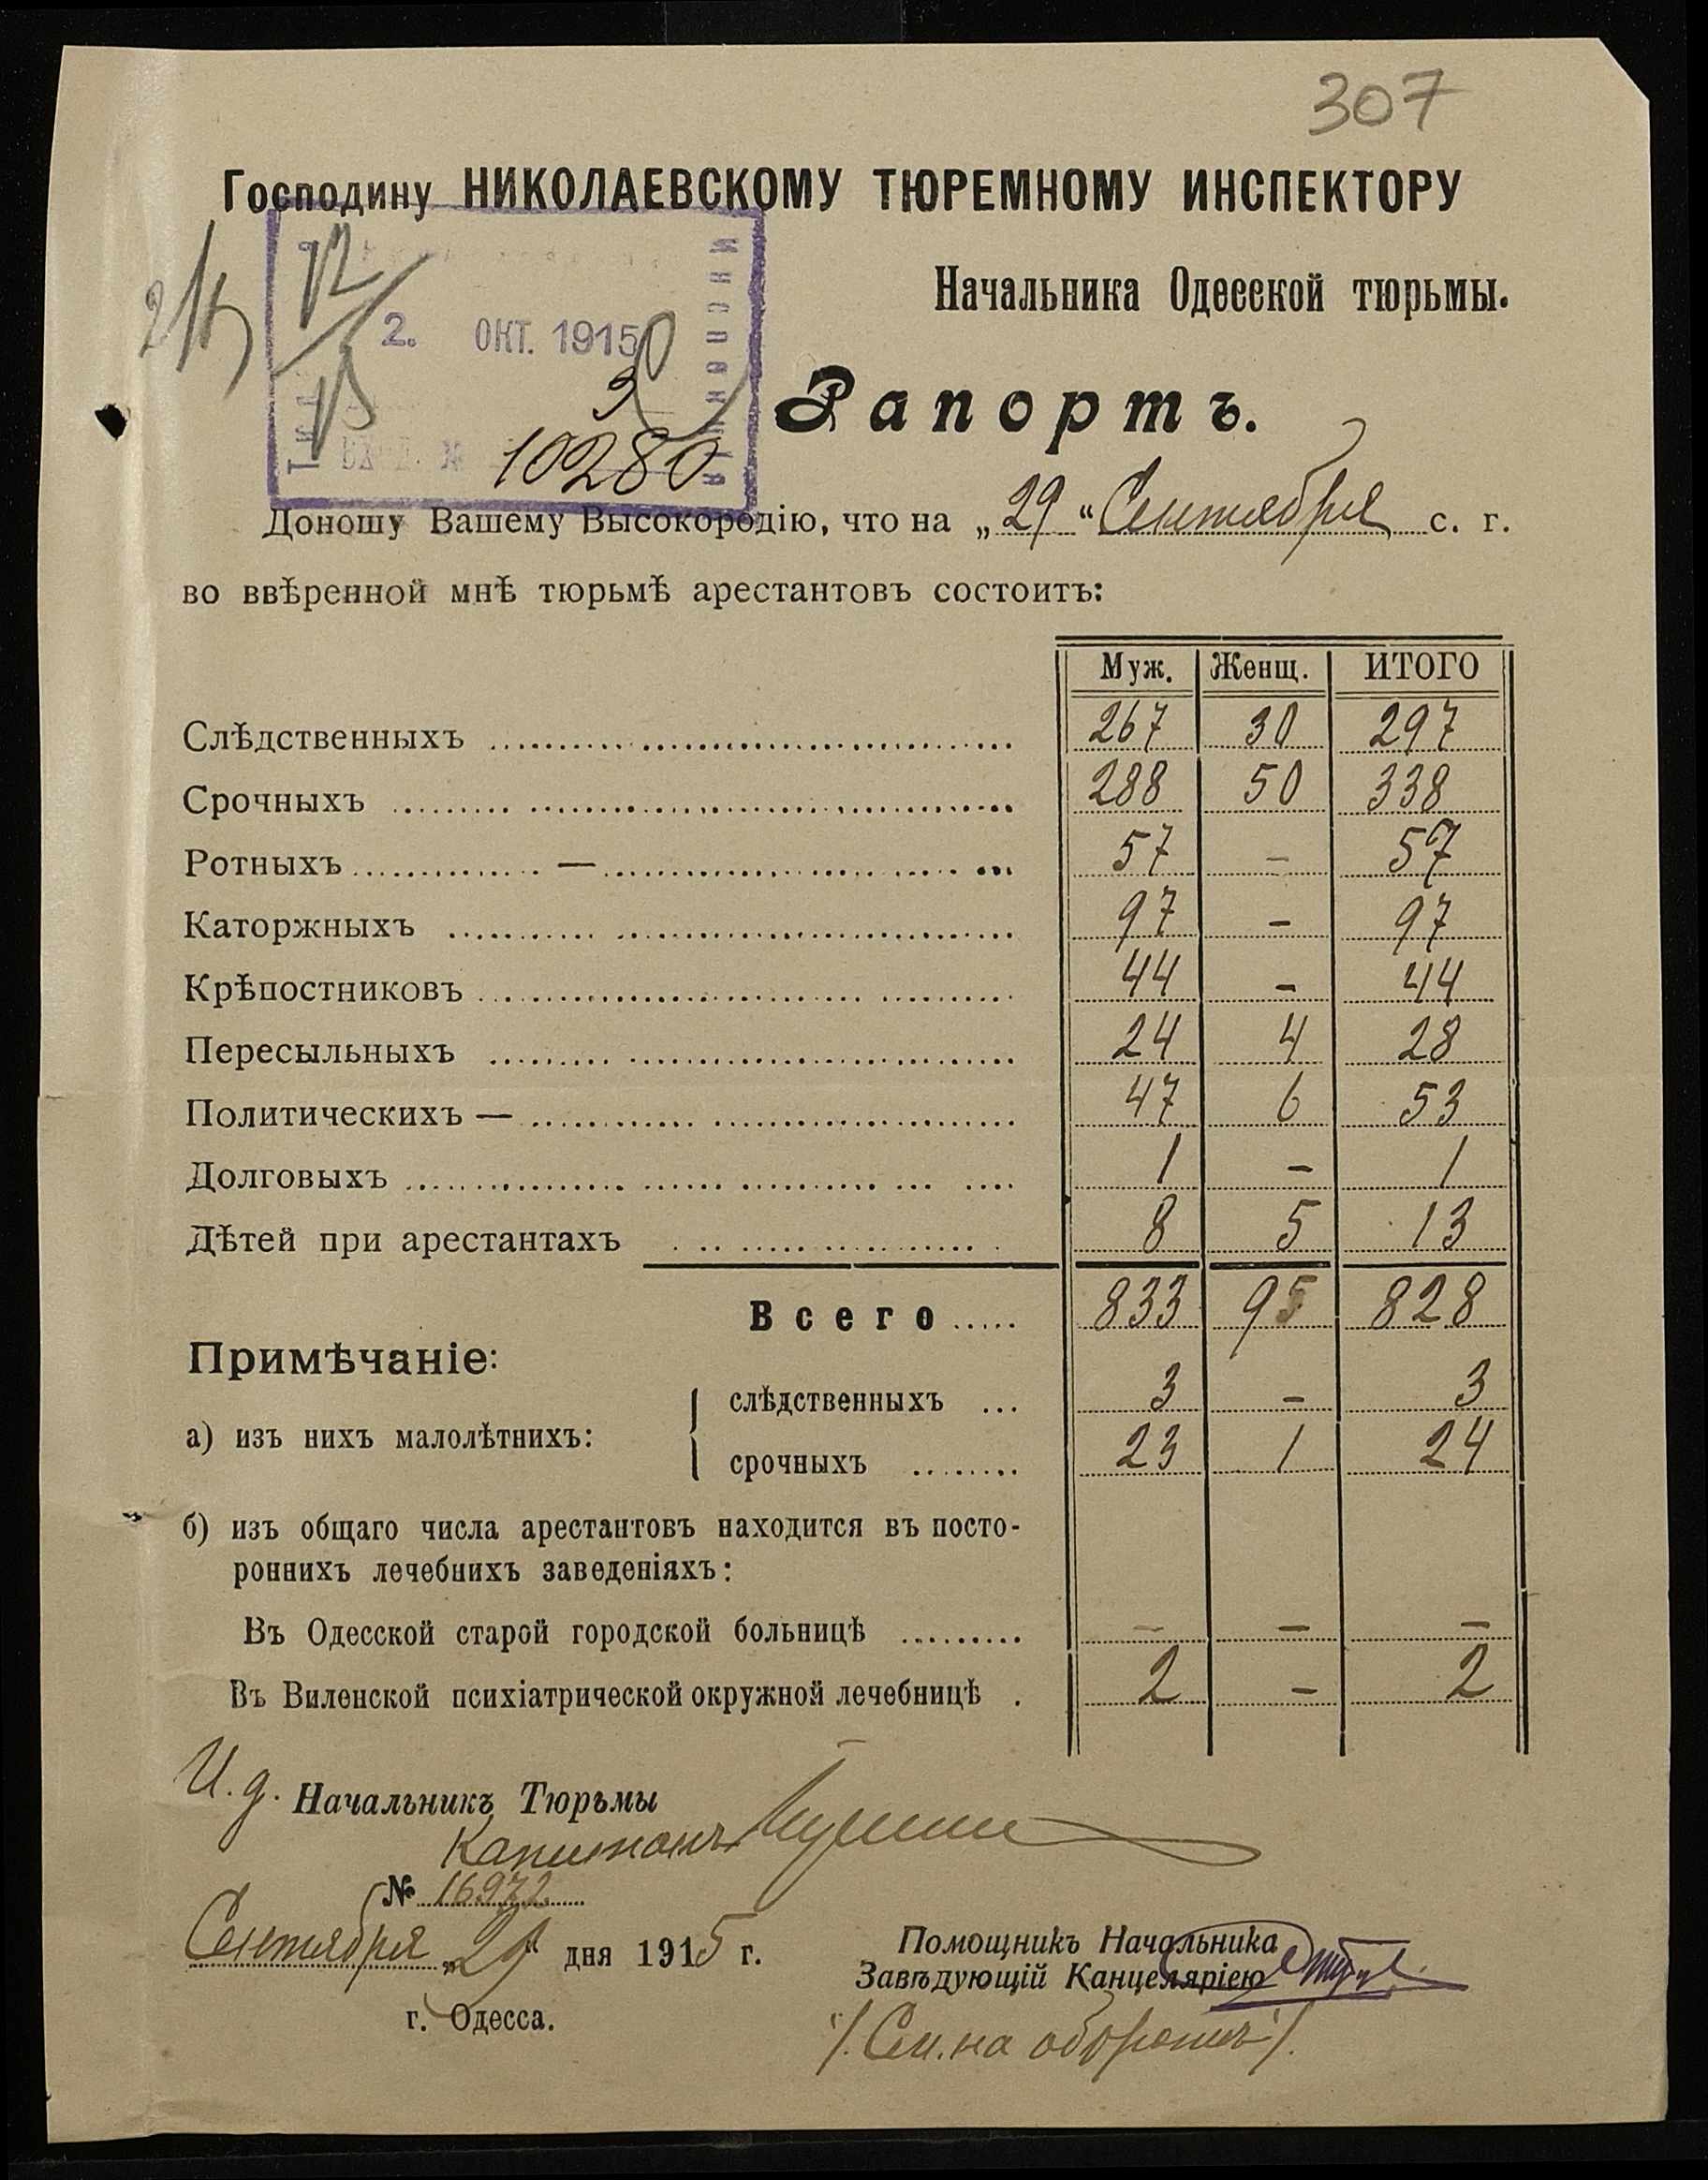 307
Господину НИКОЛАЕВСКОМУ ТЮРЕМНОМУ ИНСПЕКТОРУ
Начальника Одесской тюрьмы.
2. ОКТ. 1915
10280
Рапортъ.
Доношу Вашему Высокородію, что на „29“ Сентября с. г.
во ввѣренной мнѣ тюрьмѣ арестантовъ состоитъ:
Муж. Женщ. ИТОГО
Слѣдственныхъ 267 30 297
Срочныхъ 288 50 338
Ротныхъ — 57 - 57
Каторжныхъ 97 - 97
Крѣпостниковъ 44 - 44
Пересыльныхъ 24 4 28
Политическихъ — 47 6 53
Долговыхъ 1 - 1
Дѣтей при арестантахъ 8 5 13
Всего 833 95 828
Примѣчаніе:
а) изъ нихъ малолѣтнихъ:
слѣдственныхъ 3 - 3
срочныхъ 23 1 24
б) изъ общаго числа арестантовъ находится въ посто-
роннихъ лечебнихъ заведеніяхъ:
Въ Одесской старой городской больницѣ - - -
Въ Виленской психіатрической окружной лечебницѣ 2 - 2
И. д. Начальникъ Тюрьмы
Капитанъ
№ 16972
Сентября „29“ дня 1915 г.
г. Одесса.
Помощникъ Начальника
Завѣдующій Канцеляріею
/. См. на оборотѣ /.